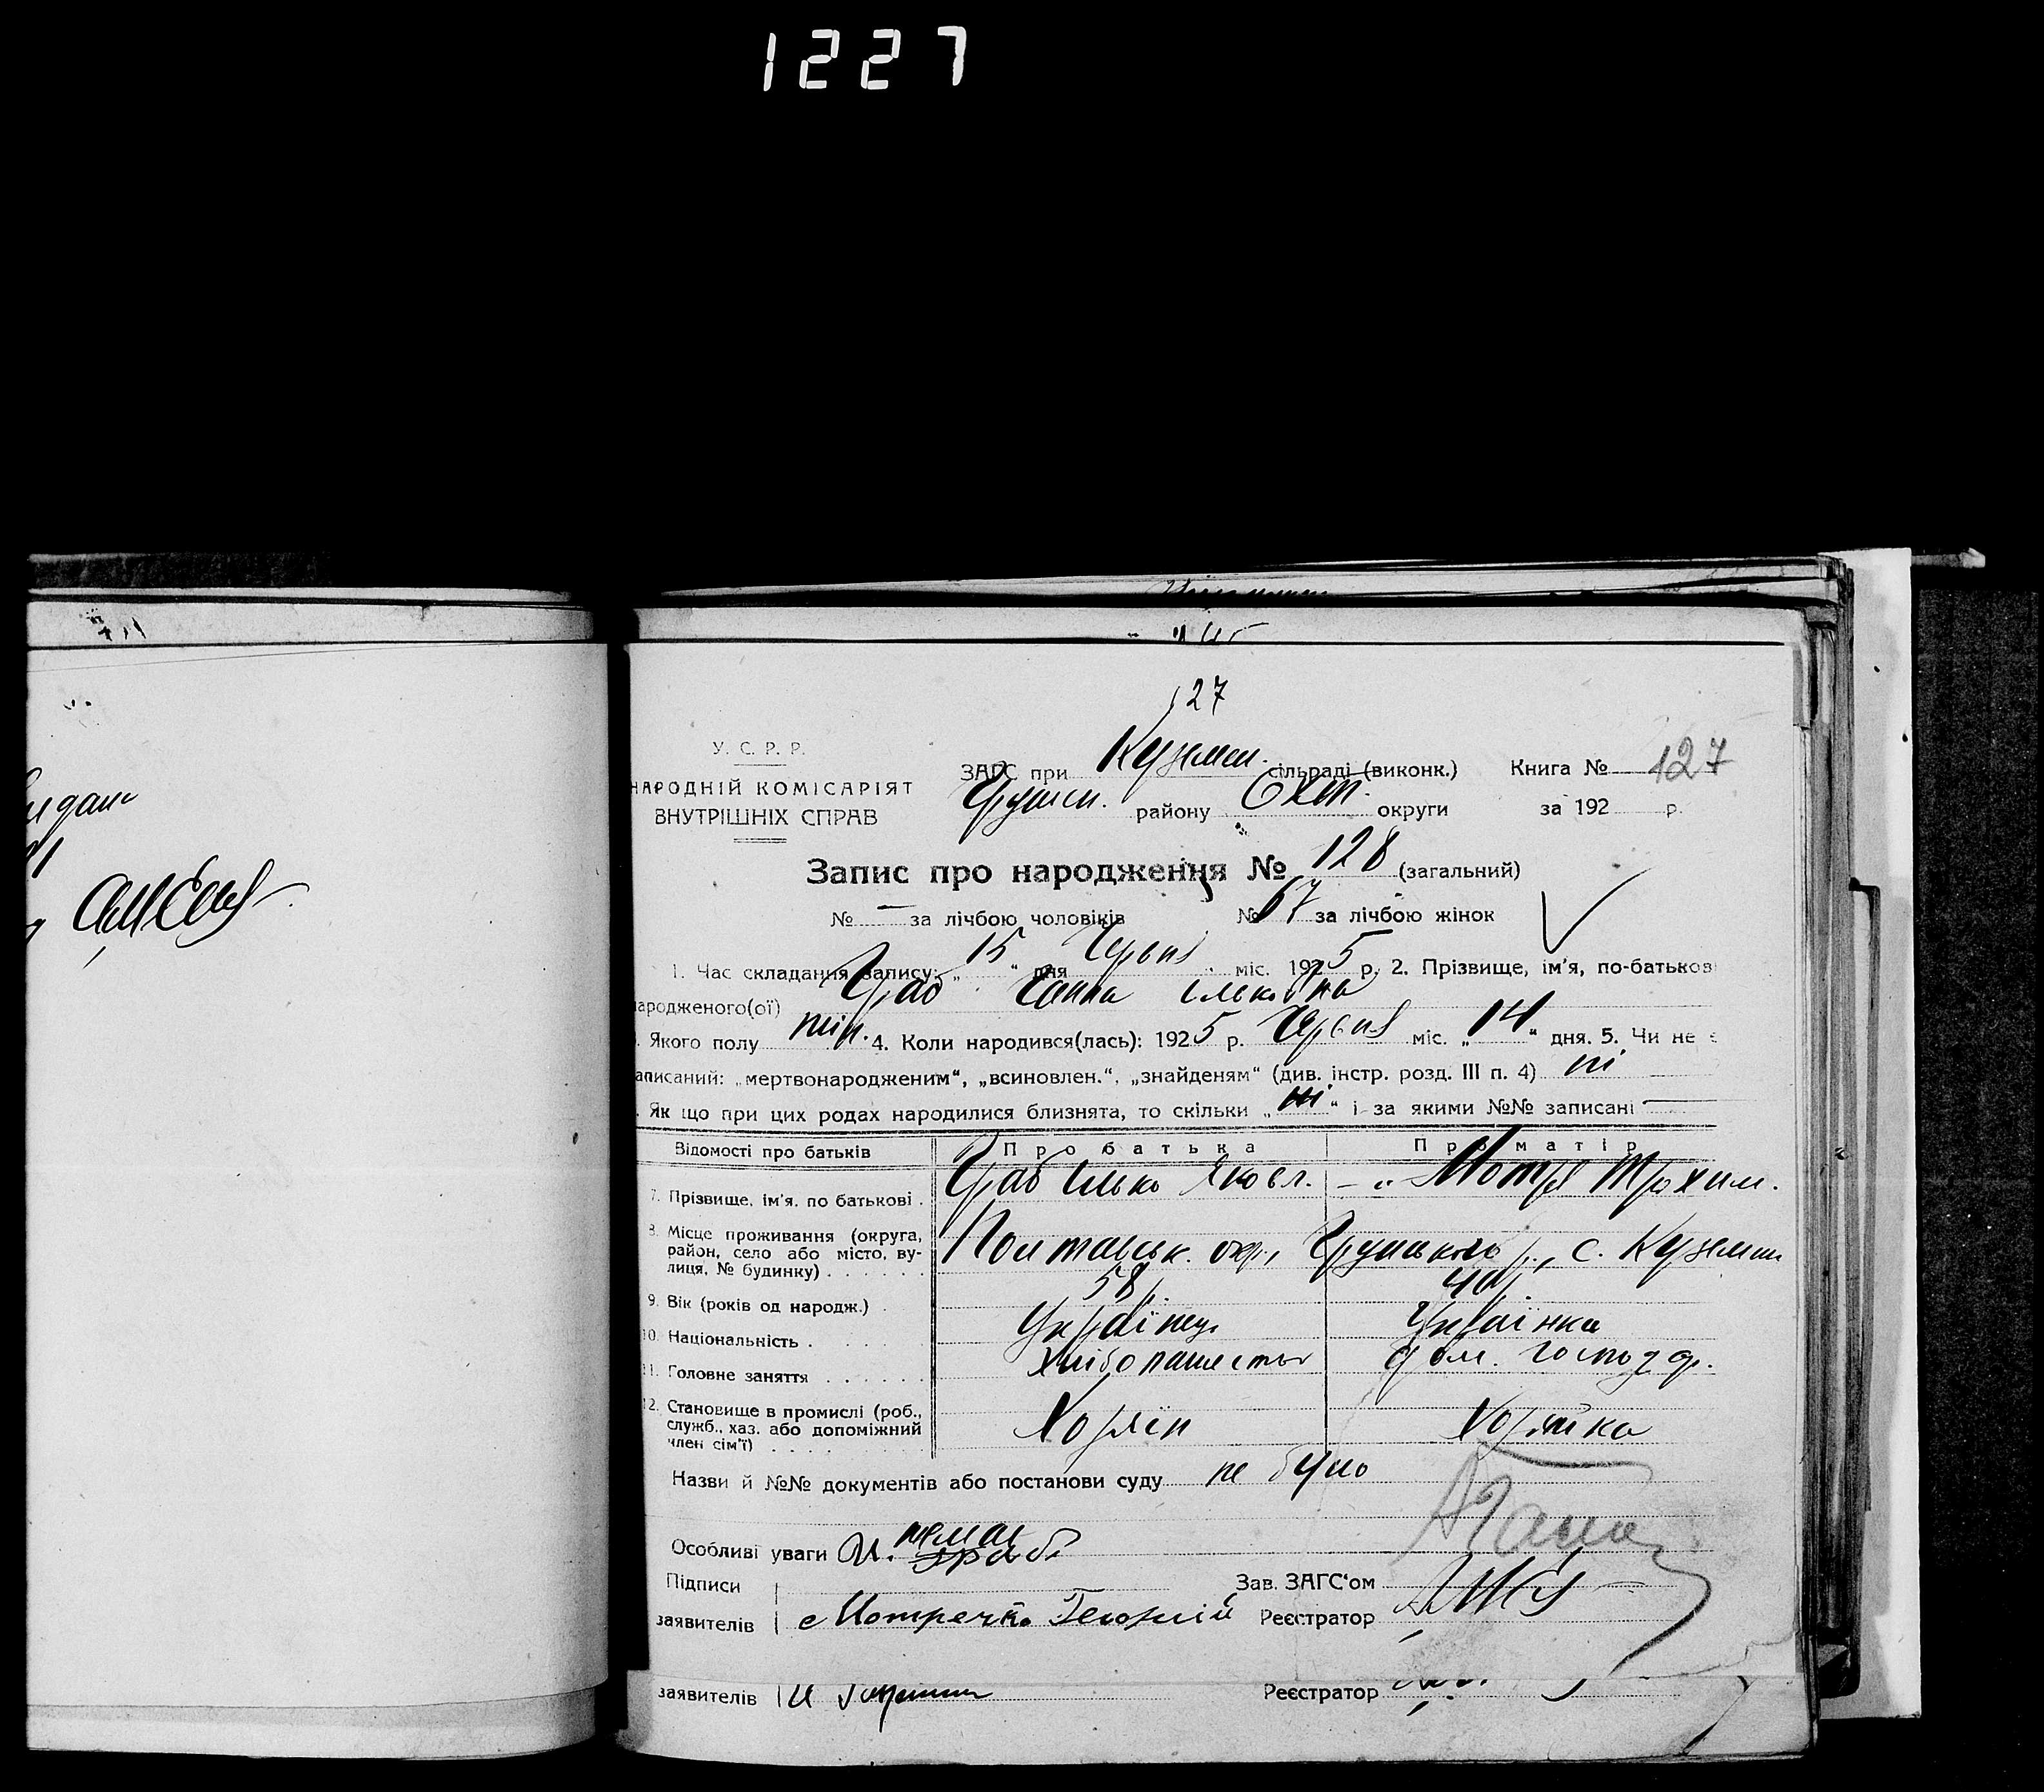 1227
127
У. С. Р. Р.
НАРОДНІЙ КОМІСАРІЯТ
ВНУТРІШНІХ СПРАВ
ЗАГС при Куземен. сільраді (виконк.) Книга № 127
Грунськ. району Охт. округи за 192 р.
Запис про народження № 128 (загальний)
№ — за лічбою чоловіків № 67 за лічбою жінок
1. Час складання запису: „ 15 “ дня Червня міс. 1925 р. 2. Прізвище, ім'я, по-батькові
народженого(ої) Граб Ганна Ільковна
Якого полу жін. 4. Коли народився(лась): 1925 р. Червня міс. „ 14 “ дня. 5. Чи не є
записаний: „мертвонародженим“, „всиновлен.“, „знайденям“ (див. інстр. розд. III п. 4) ні
Як що при цих родах народилися близнята, то скільки „ ні “ і за якими №№ записані —
Відомості про батьків Про батька Про матір
7. Прізвище, ім'я, по батькові . Граб Ілько Яковл. — „ Мотря Трохим.
8. Місце проживання (округа,
район, село або місто, ву-
лиця, № будинку) . . . . . . Полтавськ. окр., Грунського р., с. Куземин
9. Вік (років од народж.) . 58 р. 40 р.
10. Національність . Українець Українка
11. Головне заняття . . . . . . Хліборобство дом. господар.
12. Становище в промислі (роб.,
служб., хаз. або допоміжний
член сім'ї) . . . . Хозяїн Хозяйка
Назви й №№ документів або постанови суду не було
Особливі уваги немає
Підписи Зав. ЗАГС'ом
заявителів Реєстратор
заявителів Реєстратор